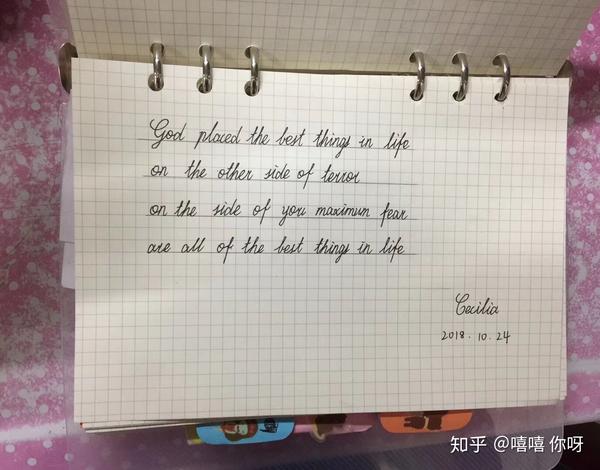 God placed the best things in life
on the other side of terror
on the side of you maximun fear
are all of the best things in life
Cecilia
2018.10.24
知乎 @嘻嘻 你呀